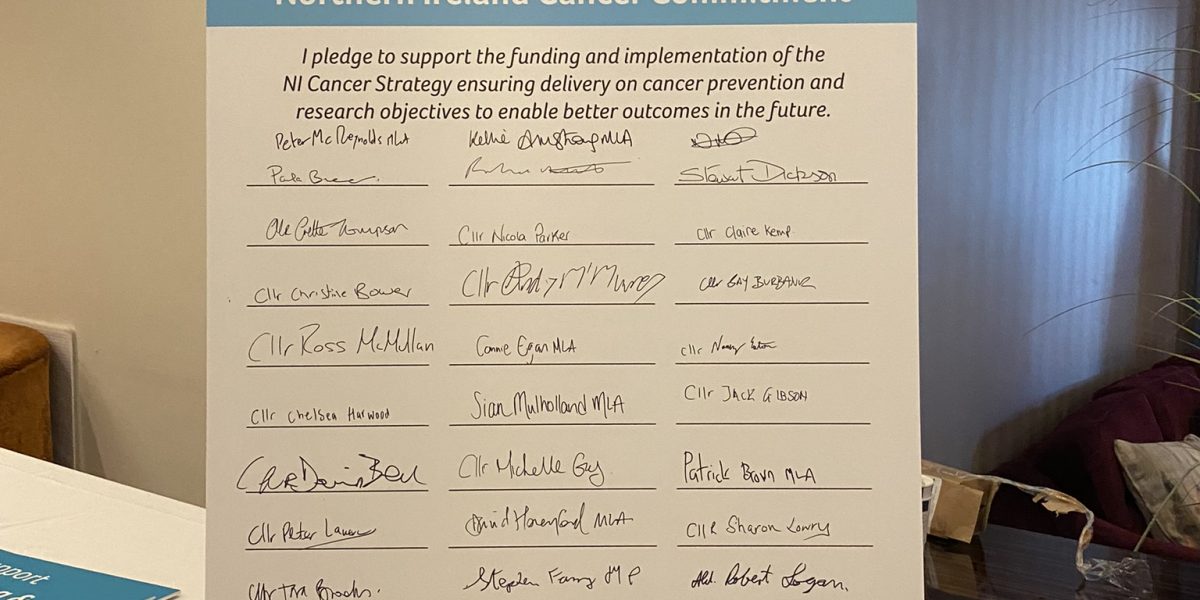 Northern Ireland Cancer Commitment
I pledge to support the funding and implementation of the
NI Cancer Strategy ensuring delivery on cancer prevention and
research objectives to enable better outcomes in the future.
Peter McReynolds MLA Kellie Armstrong MLA
Stewart Dickson
Thompson Cllr Nicola Parker Cllr Claire Kemp
Cllr Christine Bower Cllr Andy McMurray Cllr GAY BURBANK
Cllr Ross McMullan Connie Egan MLA Cllr Nancy Eaton
Cllr Chelsea Harwood Sian Mulholland MLA Cllr JACK GIBSON
Bell Cllr Michelle Guy Patrick Brown MLA
Cllr Peter David Honeyford MLA Cllr Sharon Lowry
Cllr Stephen Farry MP Ald. Robert Logan.
support